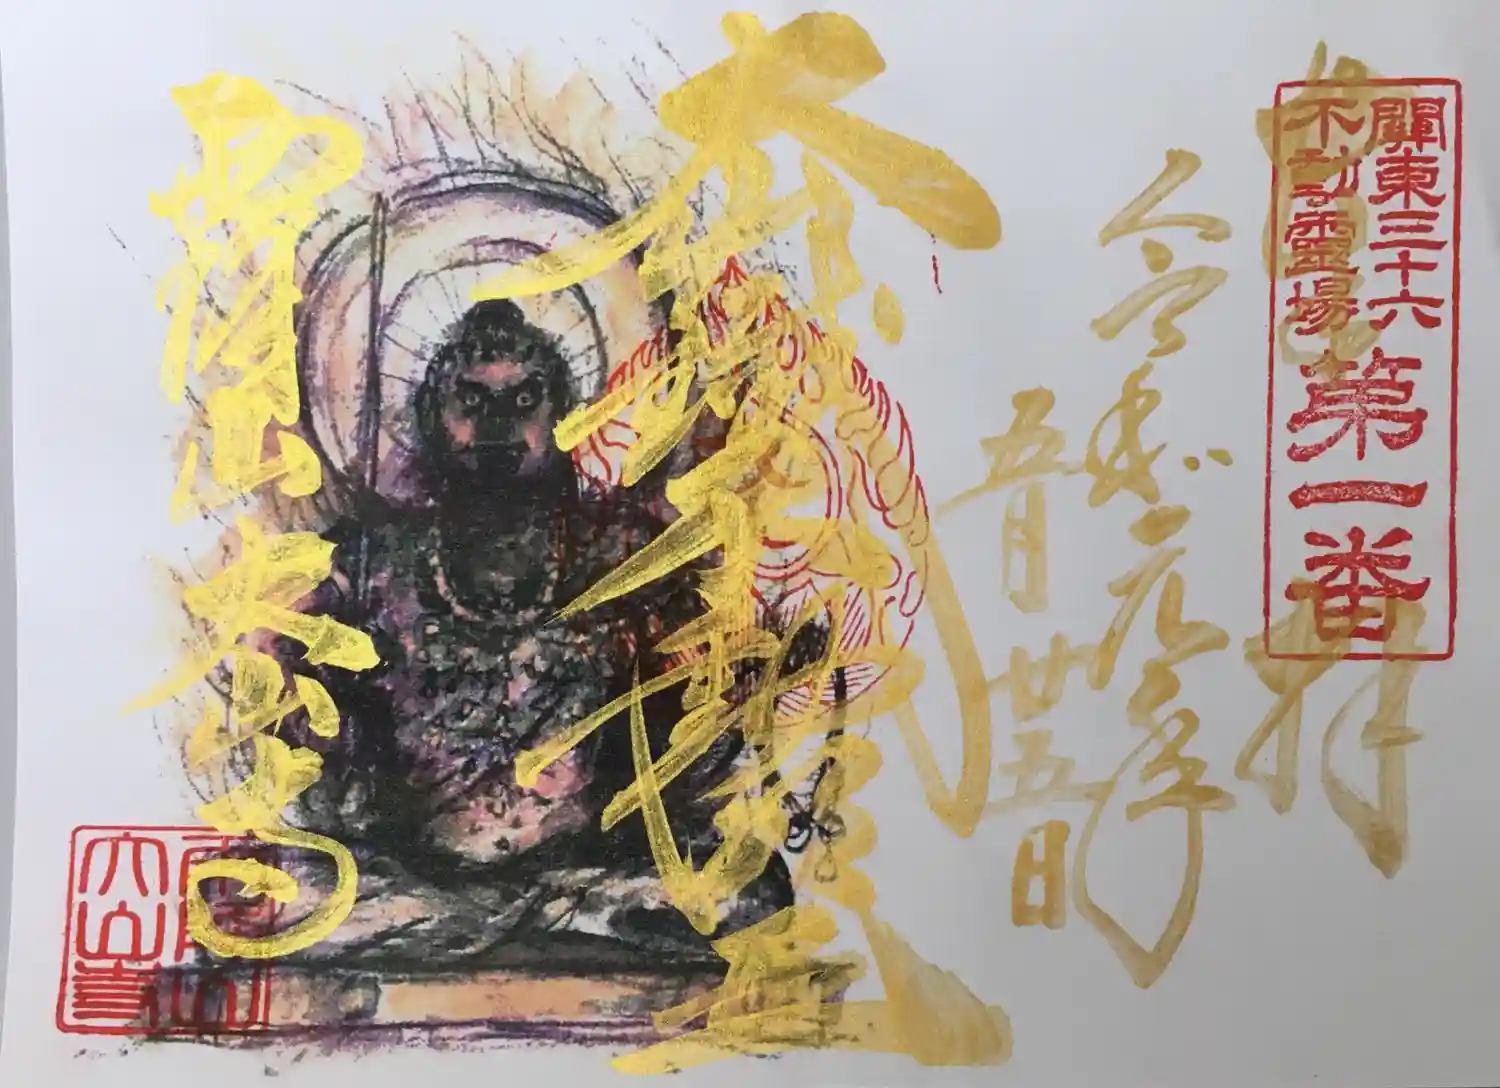 關東三十六
不動靈場
第一番
奉拝
令和元年
五月廿五日
本殿不動明王
雨降山大山寺
雨降山
大山寺